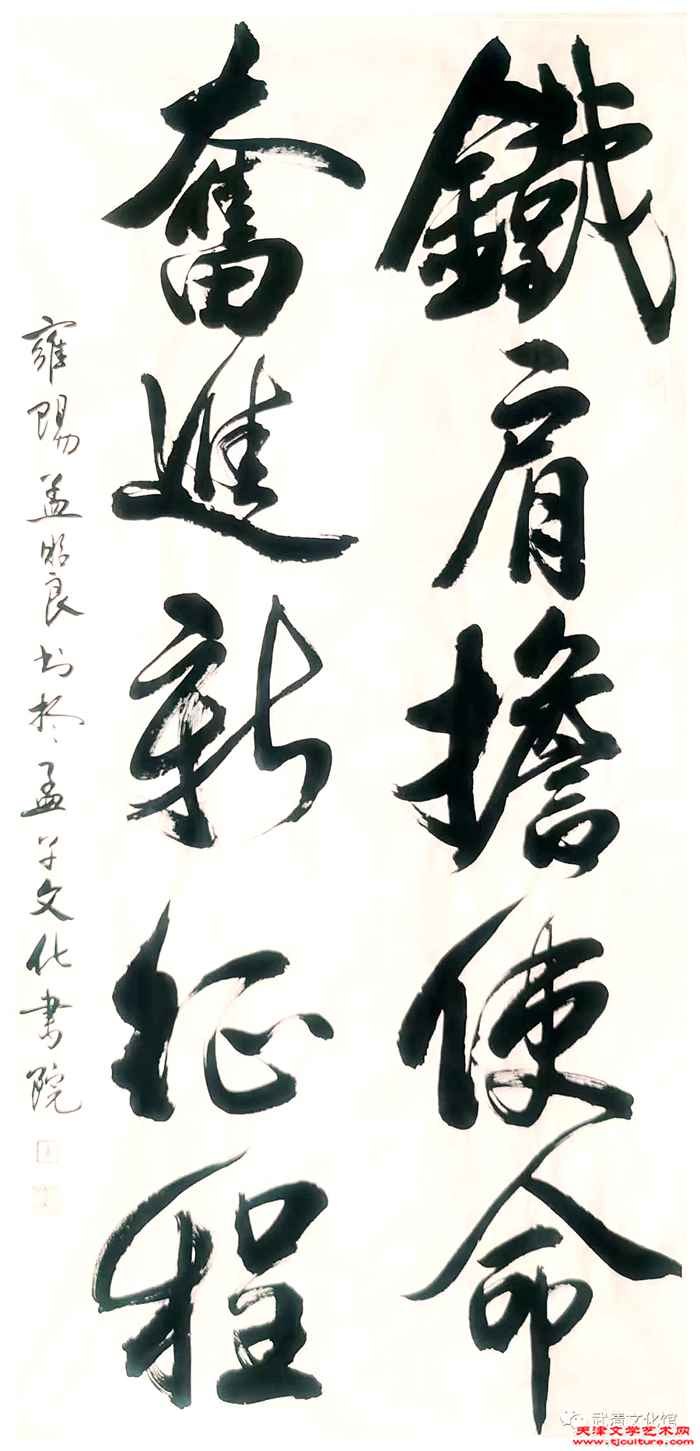 鐵肩擔使命
奮進新征程
雍陽孟昭良书於孟子文化書院
武清文化馆
天津文学艺术网
www.tjculture.com